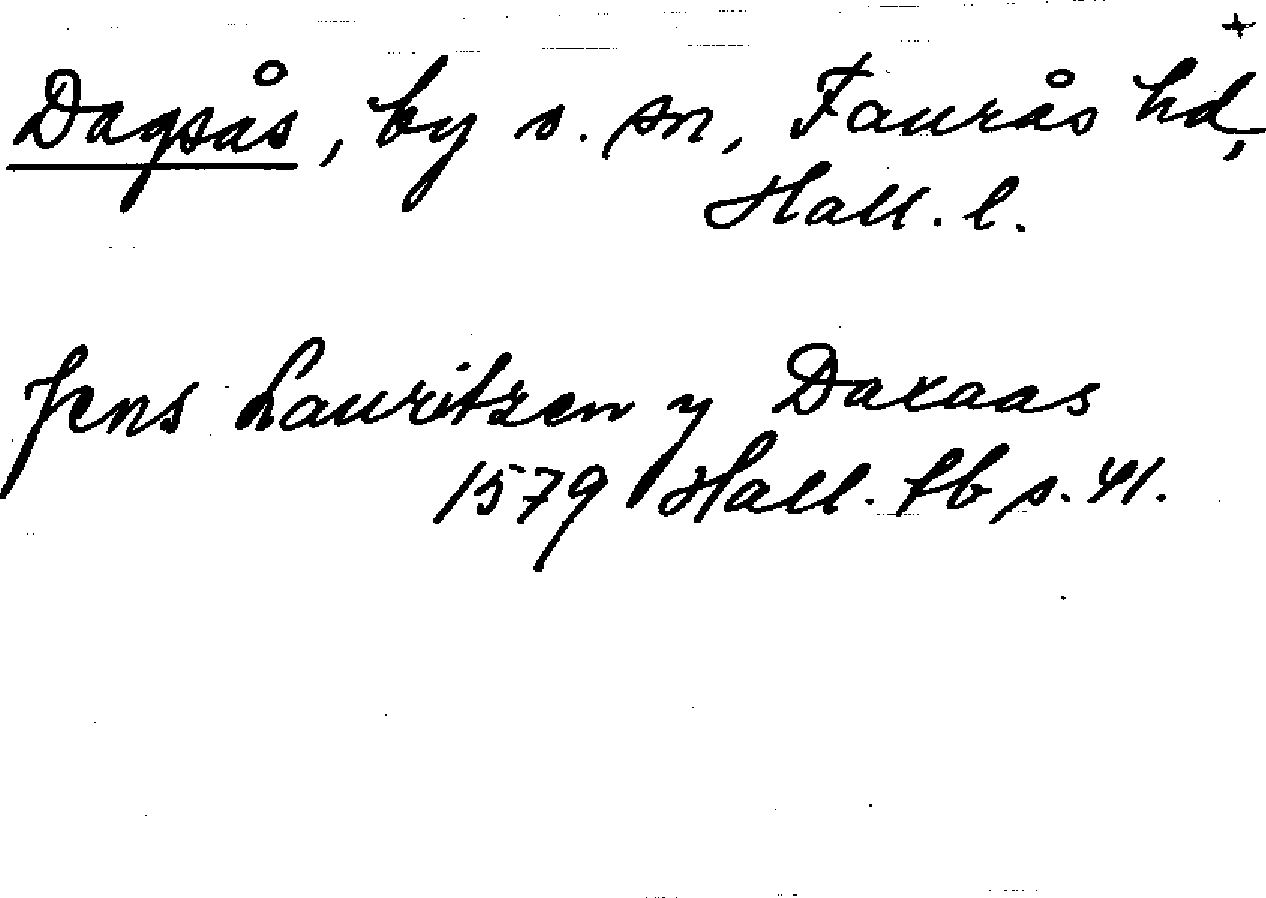 +
Dagsås, by s. sn, Faurås hd,
Hall. l.
Jens Lauritzen y Daxaas
1579 Hall. tb s. 41.